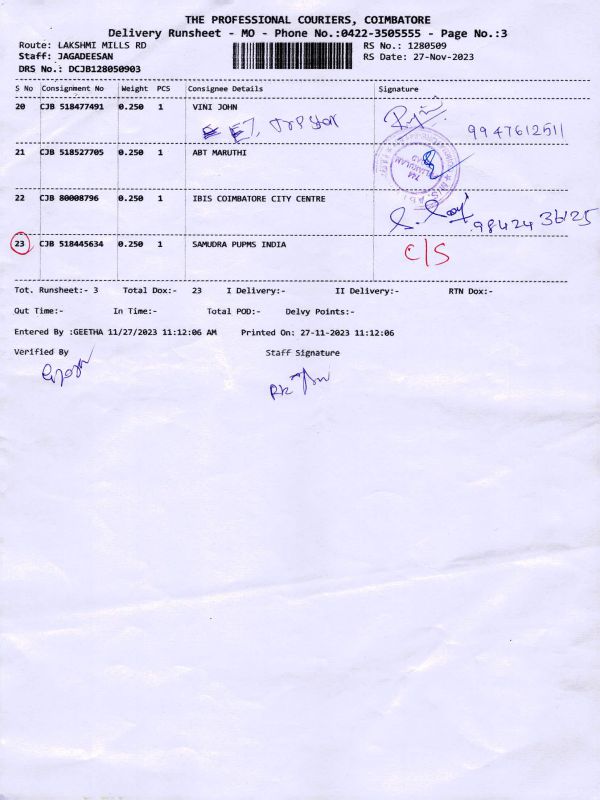 THE PROFESSIONAL COURIERS, COIMBATORE
Delivery Runsheet - MO - Phone No.:0422-3505555 - Page No.:3
Route: LAKSHMI MILLS RD RS No.: 1280509
Staff: JAGADEESAN RS Date: 27-Nov-2023
DRS No.: DCJB128050903
S No Consignment No Weight PCS Consignee Details Signature
20 CJB 518477491 0.250 1 VINI JOHN
9947612511
21 CJB 518527705 0.250 1 ABT MARUTHI
22 CJB 80008796 0.250 1 IBIS COIMBATORE CITY CENTRE
98424 36125
23 CJB 518445634 0.250 1 SAMUDRA PUPMS INDIA C/S
Tot. Runsheet:- 3 Total Dox:- 23 I Delivery:- II Delivery:- RTN Dox:-
Out Time:- In Time:- Total POD:- Delvy Points:-
Entered By :GEETHA 11/27/2023 11:12:06 AM Printed On: 27-11-2023 11:12:06
Verified By Staff Signature